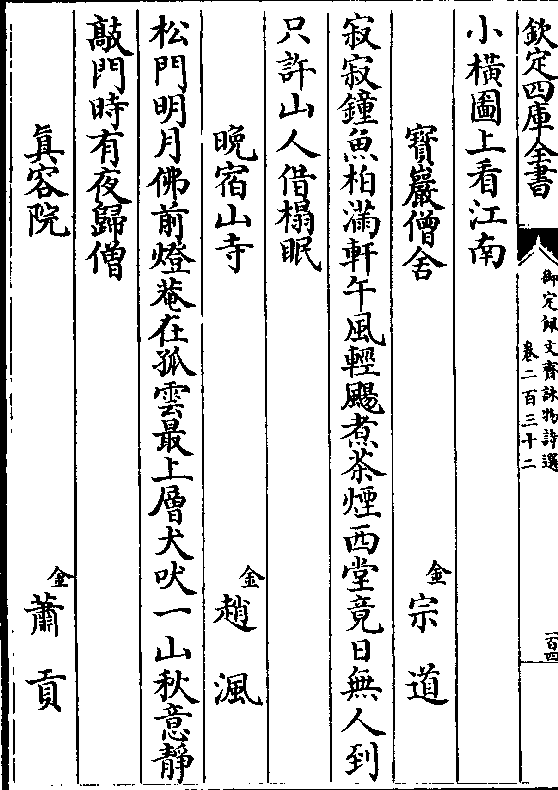 欽定四庫全書
御定佩文齋詠物詩選
卷二百三十二
一百四
小橫圖上看江南
寶巖僧舍 金 宗道
寂寂鐘魚柏滿軒午風輕颺煮茶煙西堂竟日無人到
只許山人借榻眠
晚宿山寺 金 趙渢
松門明月佛前燈菴在孤雲最上層犬吠一山秋意靜
敲門時有夜歸僧
真容院 金 蕭貢